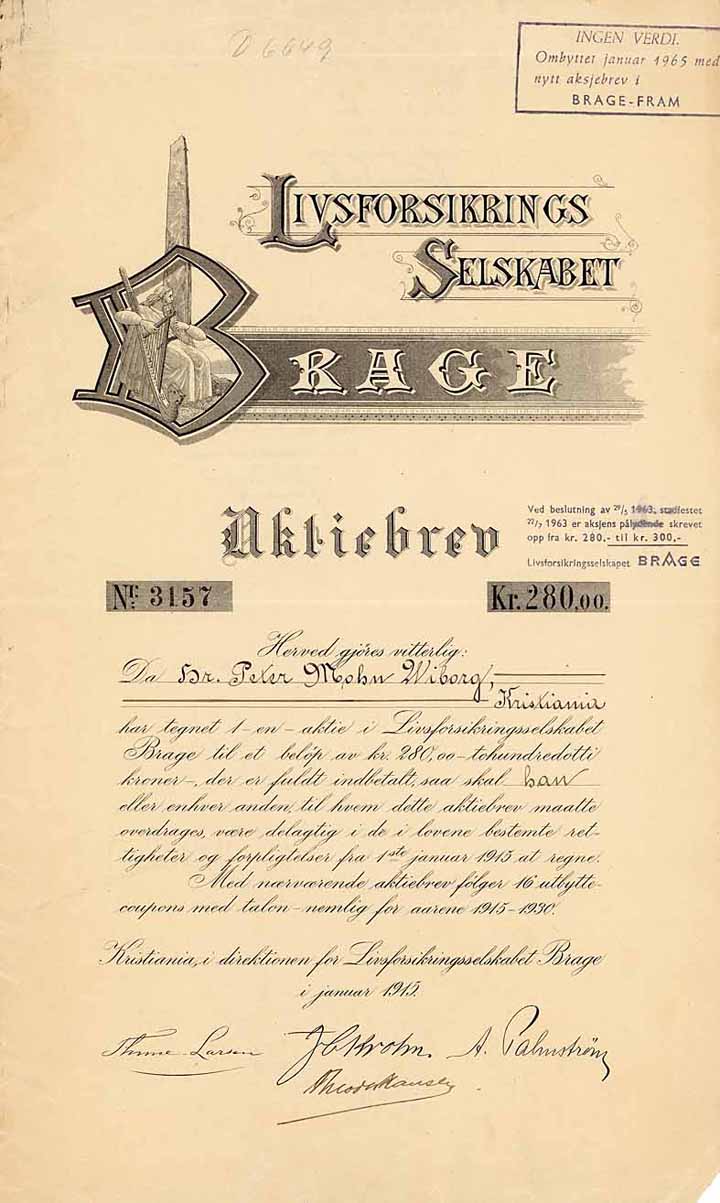 D 6649
INGEN VERDI.
Ombyttet januar 1965 med
nytt aksjebrev i
BRAGE-FRAM
LIVSFORSIKRINGS
SELSKABET
BRAGE
Aktiebrev
Ved beslutning av 29/5 1963, stadfestet
22/7 1963 er aksjens pålydende skrevet
opp fra kr. 280,- til kr. 300,-
Livsforsikringsselskapet BRAGE
Nr: 3157
Kr. 280,00.
Herved gjöres vitterlig:
Da Hr. Peter Mohn Wiborg,
Kristiania
har tegnet 1 - en - aktie i Livsforsikringsselskabet
Brage til et belöp av kr. 280,00 - tohundredotti
kroner -, der er fuldt indbetalt, saa skal han
eller enhver anden, til hvem dette aktiebrev maatte
overdrages, være delagtig i de i lovene bestemte ret-
tigheter og forpligtelser fra 1ste januar 1915 at regne.
Med nærværende aktiebrev fölger 16 utbytte-
coupons med talon - nemlig for aarene 1915-1930.
Kristiania, i direktionen for Livsforsikringsselskabet Brage
i januar 1915.
Thune-Larsen
Krohn.
A. Palmström